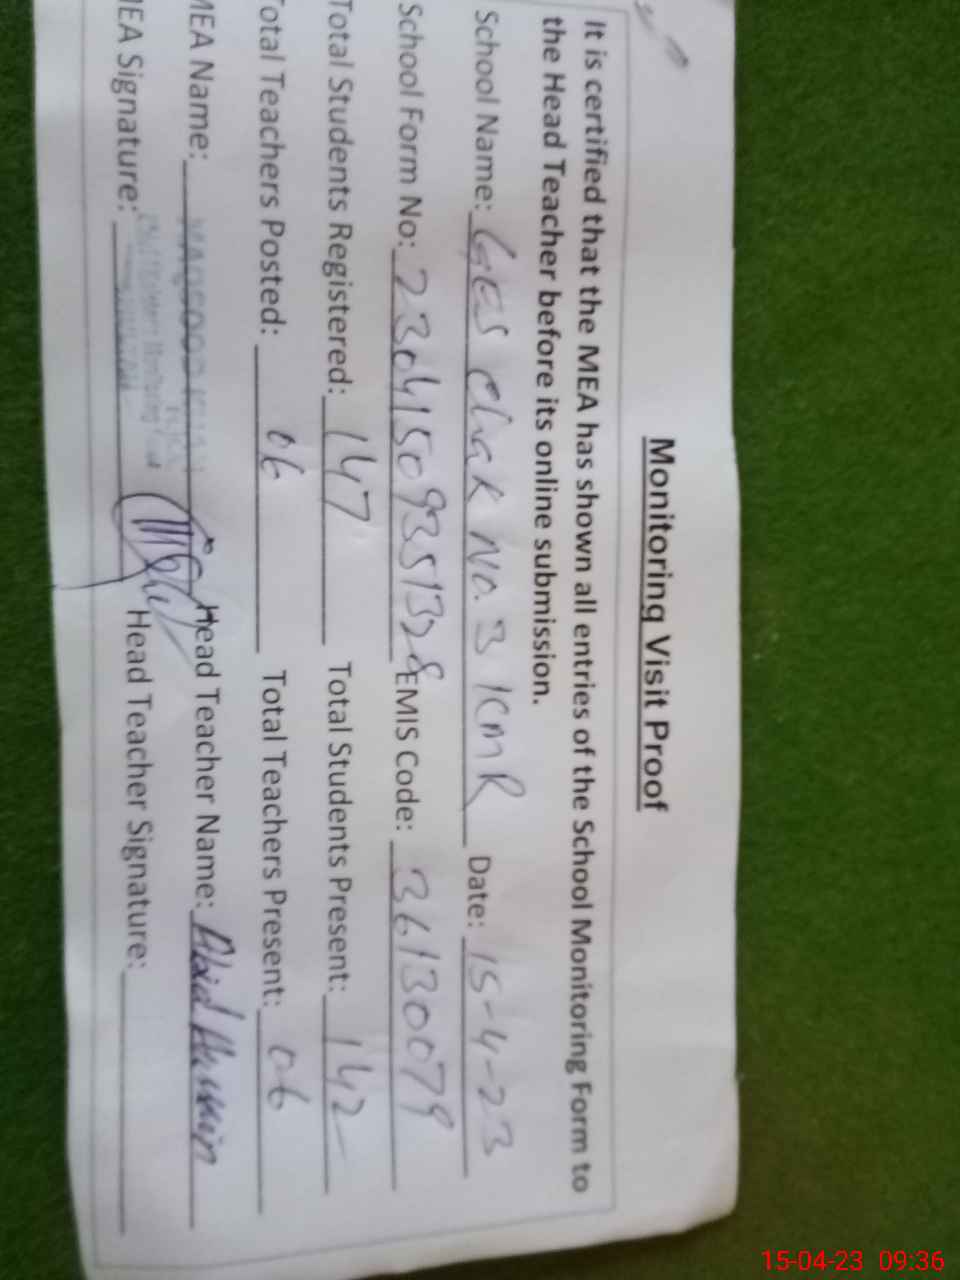 Monitoring Visit Proof
It is certified that the MEA has shown all entries of the School Monitoring Form to
the Head Teacher before its online submission.
School Name: GES Chak No. 3 1CmR Date: 15-4-23
School Form No: 23041509351328 EMIS Code: 36130079
Total Students Registered: 147 Total Students Present: 142
Total Teachers Posted: 06 Total Teachers Present: 06
MEA Name: MAQSOOD Head Teacher Name: Abid Hussain
MEA Signature: Head Teacher Signature:
15-04-23 09:36